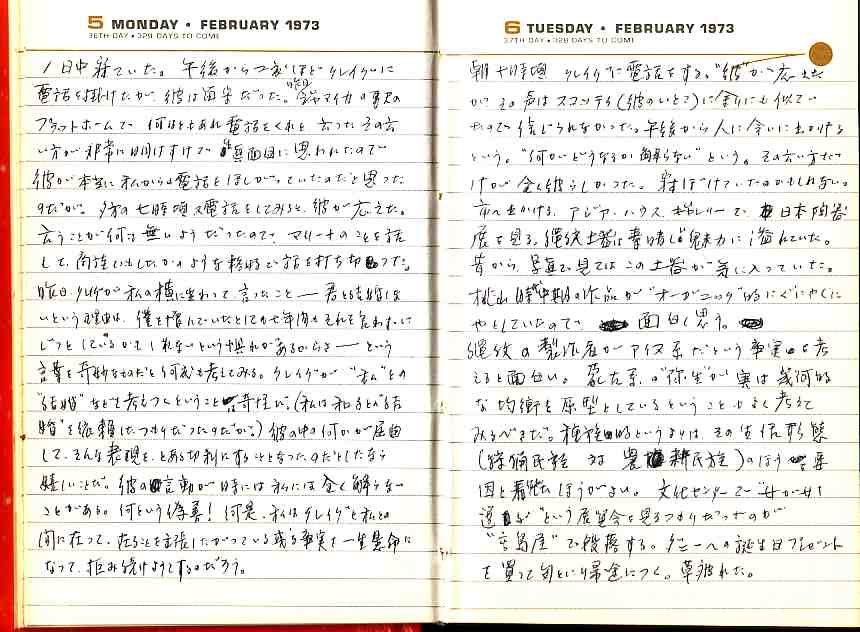 5 MONDAY • FEBRUARY 1973
36TH DAY • 329 DAYS TO COME
1日中寝ていた。午後から つ
電話を掛けたが、彼は留守だった。昨日
プラットホームで 何はともあれ電話をくれと云った その云
い方が非常に明けすけで 真面目に思われたので
彼が本当に私からの電話をほしがっていたのだと思った
のだが。夕方の七時頃又電話をしてみると、彼が応えた。
云うことが何も無いようだったので、マリーナのことを話
して、
昨日、クレイグが私の横に坐わって言ったこと — 君と結婚しな
いという理由は、僕を憎んでいたとしても七年間もそれを言わずに
じっとしているかもしれないという惧れがあるからよ — という
言葉を奇妙なものだと何度も考えてみる。クレイグが "私" との
"結婚" などを考えつくということ 奇怪だ。(私は
婚" を依頼したつもりだったのだが。) 彼の中の何かが屈曲
して、そんな表現を、とある切
嬉しいことだ。彼の言動が時には私には全く解らな
ことがある。何という偽善! 何
間に在って、在ることを主張したがっている或る事実を一生懸命に
なって、拒み続けようとするのだろう。
6 TUESDAY • FEBRUARY 1973
37TH DAY • 328 DAYS TO COME
朝十時頃 クレイグに電話をする。"彼" が応えた
が その声はスコッティ (彼のいとこ) に余りにも似てい
たので 信じられなかった。午後から人に会いに出かける
という。"何がどうなるか解らない" という。その云い方だ
けが全く彼らしかった。寝ぼけていたのかもしれない。
市へ出かける、アジア・ハウス・ギャラリーで 日本陶器
展を見る。縄紋土器は素晴しい魅力に溢れていた。
昔から、写真で見てはこの土器が気に入っていた。
桃山時中期の作品が "オーガニック" 的にぐにゃぐに
ゃとしていたので 面白く思う。
縄紋の製作者がアイヌ系だという事実も考
えると面白い。蒙古系の "弥生" が実は幾何的
な均衡を原型としているということもよく考えて
みるべきだ。種族的というよりは、その生活形態
(狩猟民族 対 農耕民族) のほう 要
因と看做したほうがよい。文化センターで "
" という展覧会を見るつもりだったのが
"高島屋" で 。ダニーへの誕生日プレゼント
を買って 帰途につく。草疲れた。